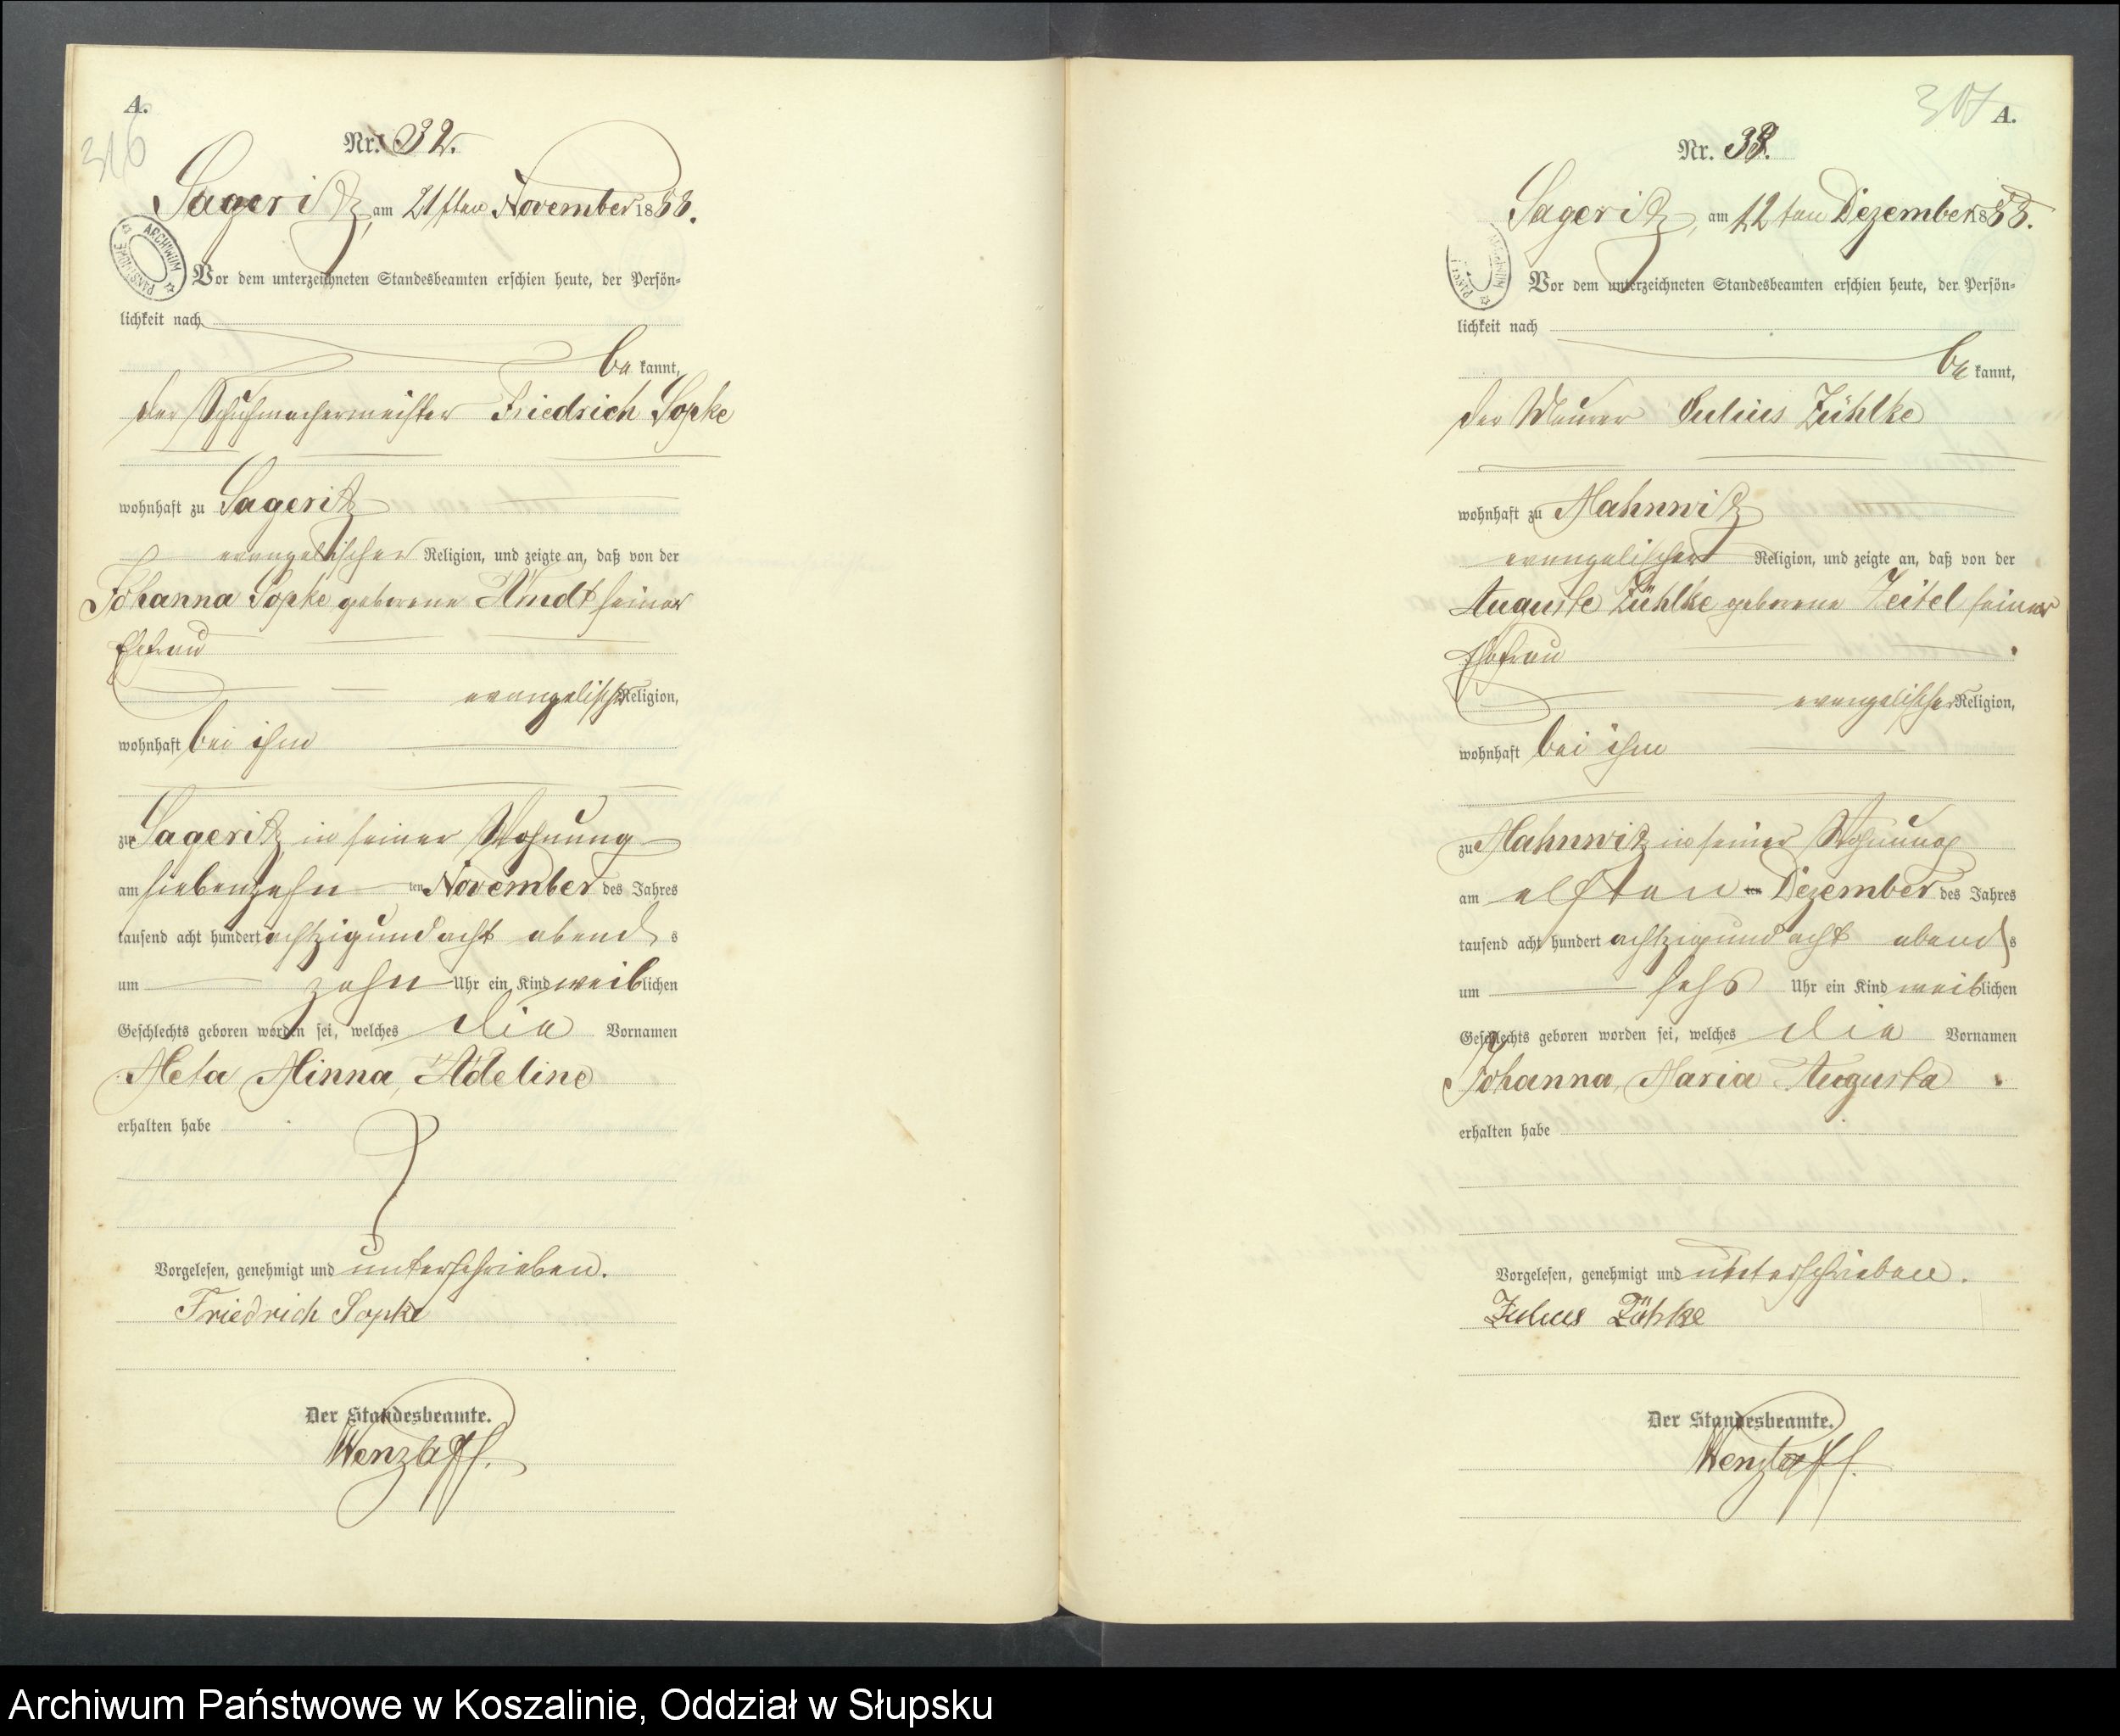 A.
316
Nr. 32.
Sageritz, am 21sten November 1888.
ARCHIWUM PAŃSTWOWE
Vor dem unterzeichneten Standesbeamten erschien heute, der Persön=
lichkeit nach
be kannt,
der Schuhmachermeister Friedrich Sopke
wohnhaft zu Sageritz
evangelischer Religion, und zeigte an, daß von der
Johanna Sopke geborene Arndt seiner
Ehefrau
evangelischer Religion,
wohnhaft bei ihm
zu Sageritz in seiner Wohnung
am siebenzehn ten November des Jahres
tausend acht hundert achtzigundacht abend s
um zehn Uhr ein Kind weiblichen
Geschlechts geboren worden sei, welches die Vornamen
Meta, Minna, Adeline
erhalten habe
Vorgelesen, genehmigt und unterschrieben.
Friedrich Sopke
Der Standesbeamte.
Wenzlaff.
A.
Nr. 33.
Sageritz, am 12ten Dezember 1888.
Vor dem unterzeichneten Standesbeamten erschien heute, der Persön=
lichkeit nach
be kannt,
der Maurer Julius Zühlke
wohnhaft zu Mahnwitz
evangelischer Religion, und zeigte an, daß von der
Auguste Zühlke geborene Zeitel seiner
Ehefrau
evangelischer Religion,
wohnhaft bei ihm
zu Mahnwitz in seiner Wohnung
am elften ten Dezember des Jahres
tausend acht hundert achtzigundacht abend s
um sechs Uhr ein Kind weiblichen
Geschlechts geboren worden sei, welches die Vornamen
Johanna, Maria Augusta
erhalten habe
Vorgelesen, genehmigt und unterschrieben.
Julius Zühlke
Der Standesbeamte.
Wenzlaff.
Archiwum Państwowe w Koszalinie, Oddział w Słupsku